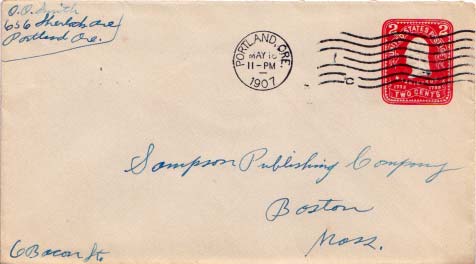 O.O. Smith
656 Sherlock Ave
Portland Ore.
PORTLAND, ORE.
MAY 16
11-PM
1907
2 2
UNITED STATES POSTAGE
TWO CENTS
Sampson Publishing Company
Boston
Mass.
6 Bacon St.